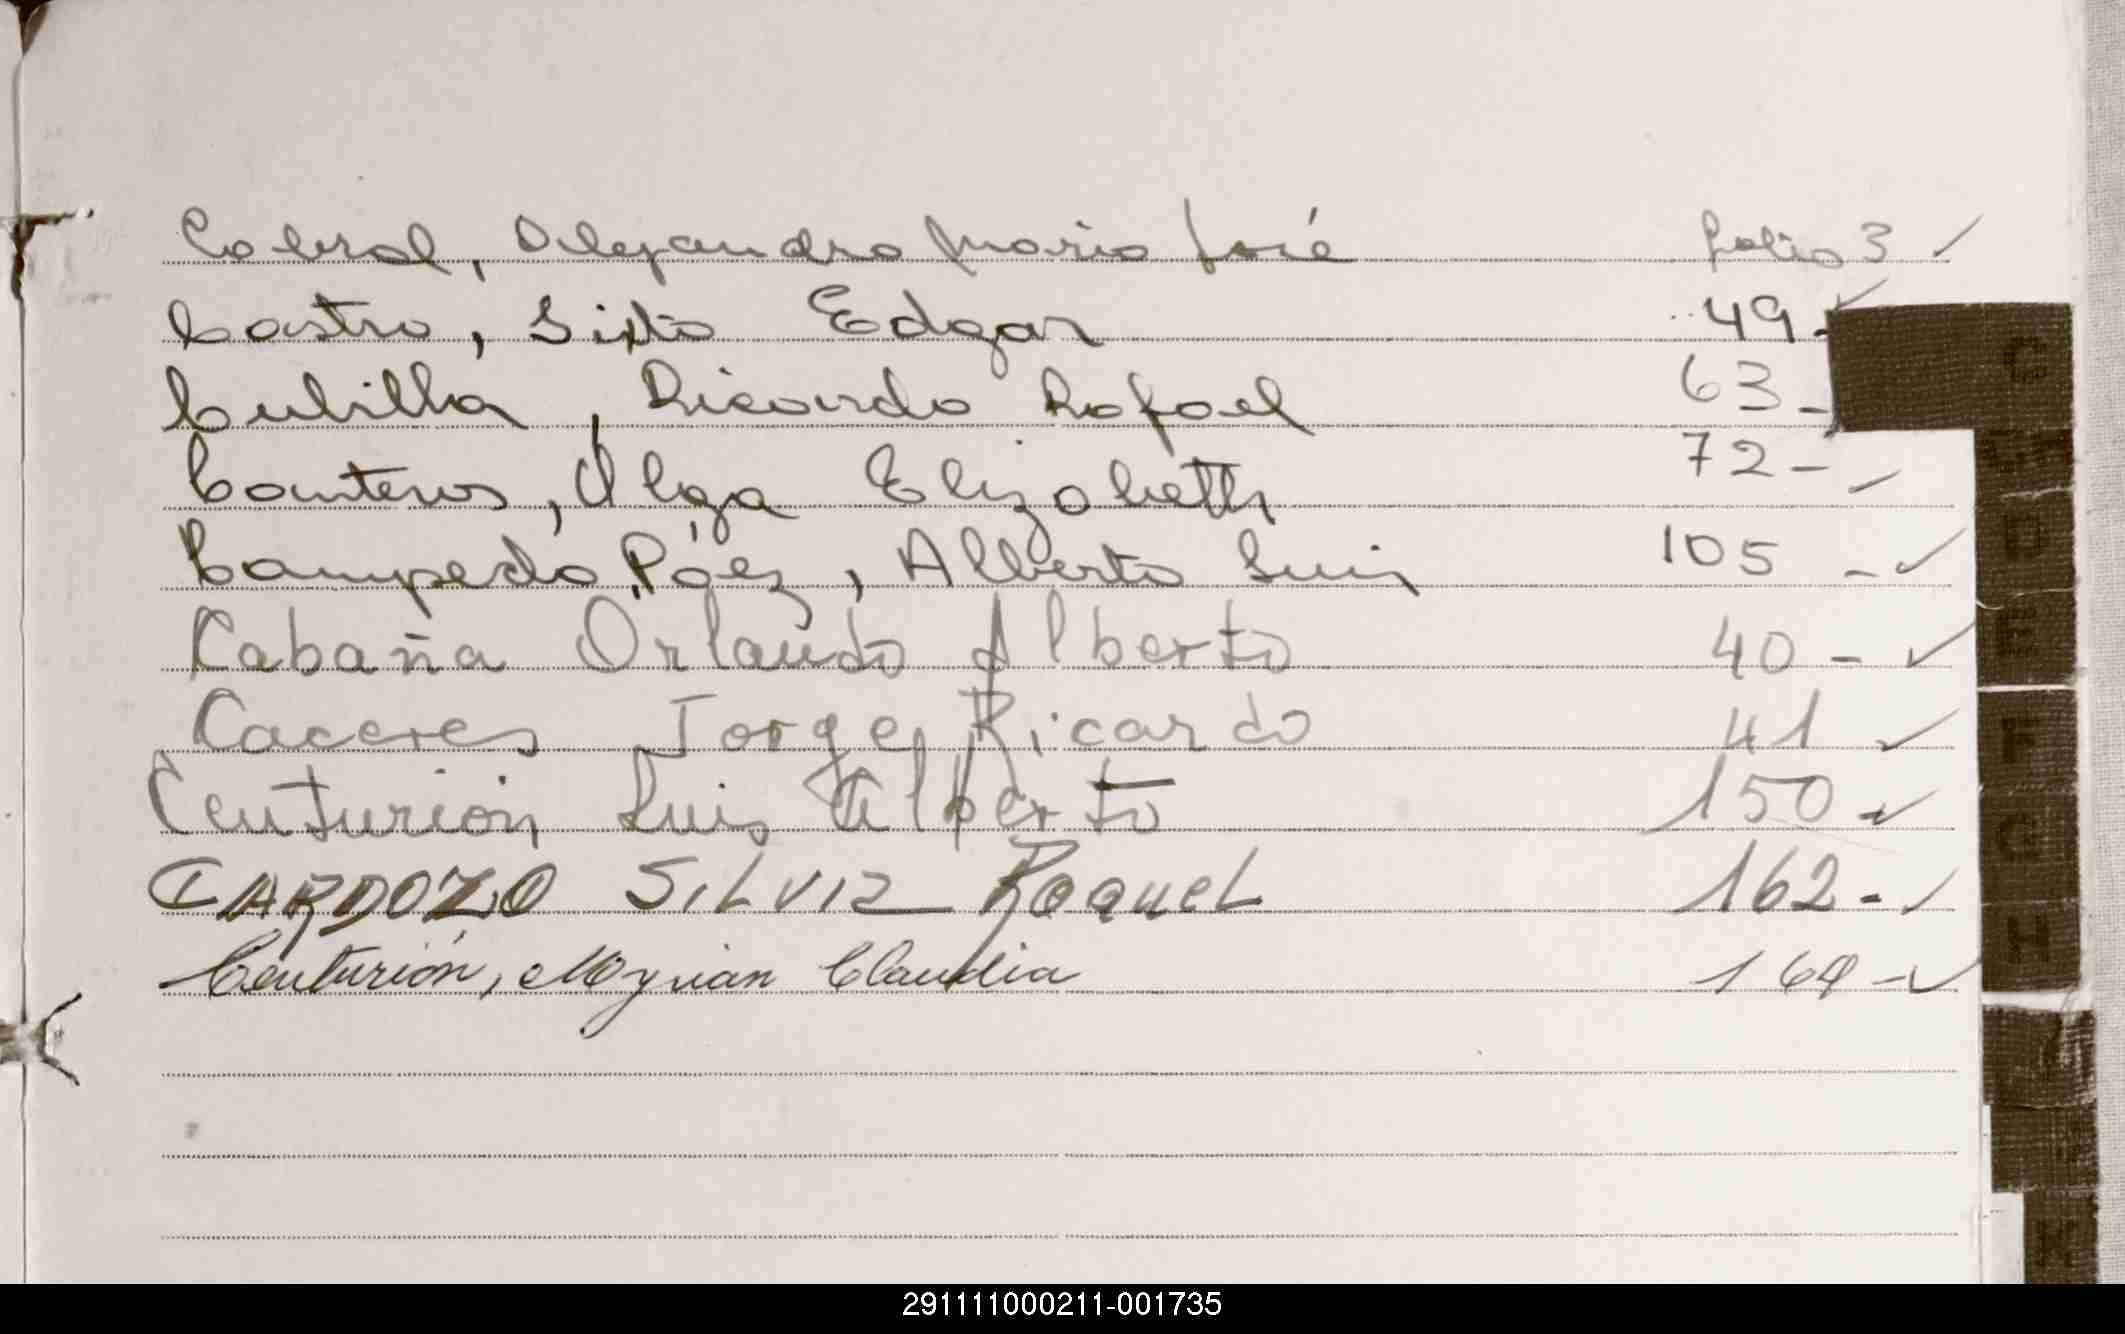 Cabral, Alejandro Mario José folio 3 ✓
Castro, Sixto Edgar 49 - ✓
Cubilla, Ricardo Rafael 63 -
Canteros, Olga Elizabeth 72 - ✓
Campedo Páez, Alberto Luis 105 - ✓
Cabaña Orlando Alberto 40 - ✓
Caceres Jorge Ricardo 41 ✓
Centurión Luis Alberto 150 - ✓
CARDOZO SILVIA RaqueL 162 - ✓
Centurión, Myrian Claudia ✓
C
D
E
F
G
H
291111000211-001735